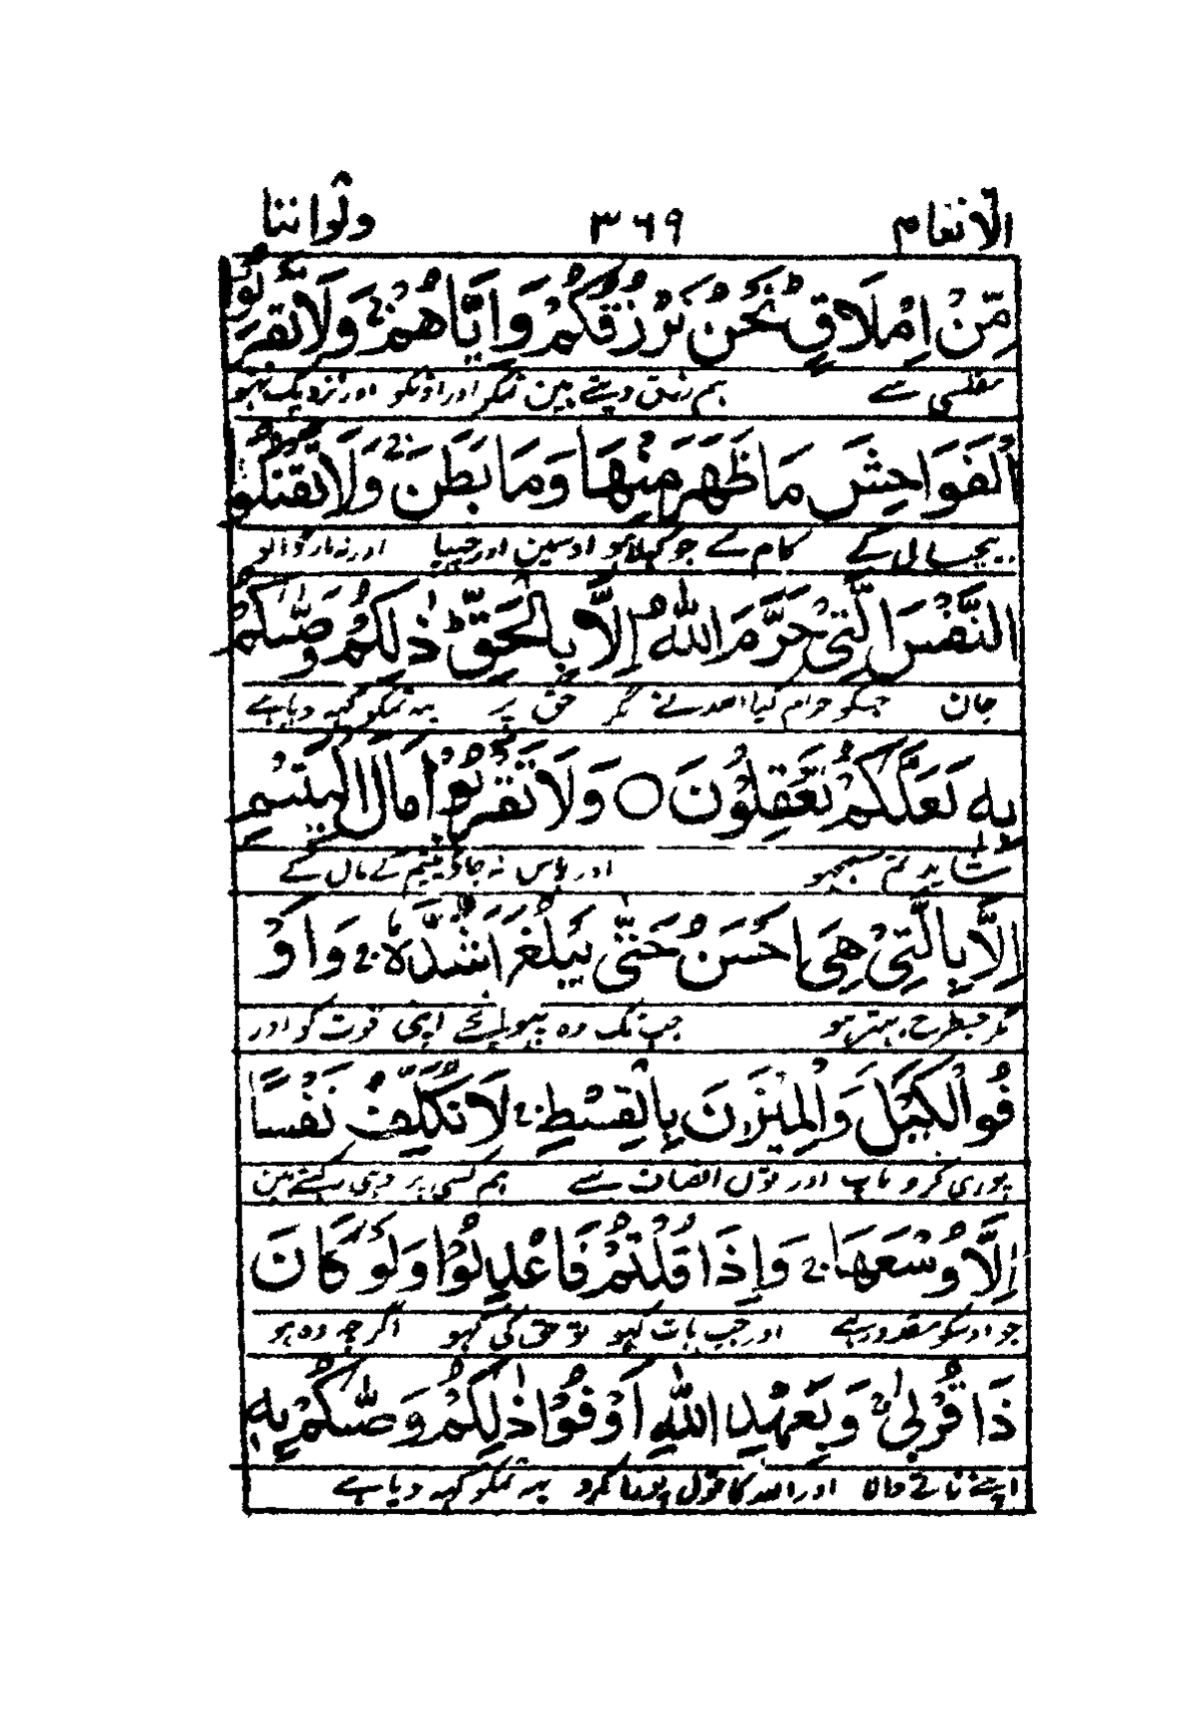 الانعام ٣٦٩ ولواننا
مِّنْ اِمْلَاقٍ ؕ نَحْنُ نَرْزُقُكُمْ وَاِيَّاهُمْ ۚ وَلَا تَقْرَبُوا
مفلسی سے ہم رزق دیتے ہین تمکو اور اونکو اور نزدیک نہو
الْفَوَاحِشَ مَا ظَهَرَ مِنْهَا وَمَا بَطَنَ ۚ وَلَا تَقْتُلُوا
بیحیائی کے کام کے جو کہلا ہو اوسمین اور چہپا اور نہ مار ڈالو
النَّفْسَ الَّتِىْ حَرَّمَ اللّٰهُ اِلَّا بِالْحَقِّ ؕ ذٰلِكُمْ وَصّٰىكُمْ
جان جسکو حرام کیا اللہ نے مگر حق پر یہہ تمکو کہہ دیا ہے
بِهٖ لَعَلَّكُمْ تَعْقِلُوْنَ ○ وَلَا تَقْرَبُوْا مَالَ الْيَتِيْمِ
شاید تم سمجہو اور پاس نہ جاؤ یتیم کے مال کے
اِلَّا بِالَّتِىْ هِىَ اَحْسَنُ حَتّٰى يَبْلُغَ اَشُدَّهٗ ۚ وَاَوْ
مگر جسطرح بہتر ہو جب تک وہ پہونچے اپنی قوت کو اور
فُوا الْكَيْلَ وَالْمِيْزَانَ بِالْقِسْطِ ۚ لَا نُكَلِّفُ نَفْسًا
پوری کرو ماپ اور تول انصاف سے ہم کسی پر وہی رکہتے ہین
اِلَّا وُسْعَهَا ۚ وَاِذَا قُلْتُمْ فَاعْدِلُوْا وَلَوْ كَانَ
جو اوسکو مقدور ہے اور جب بات کہو تو حق کی کہو اگرچہ وہ ہو
ذَا قُرْبٰى ۚ وَبِعَهْدِ اللّٰهِ اَوْفُوْا ذٰلِكُمْ وَصّٰىكُمْ بِهٖ
اپنے ناتے والا اور اللہ کا قول پورا کرو یہہ تمکو کہہ دیا ہے